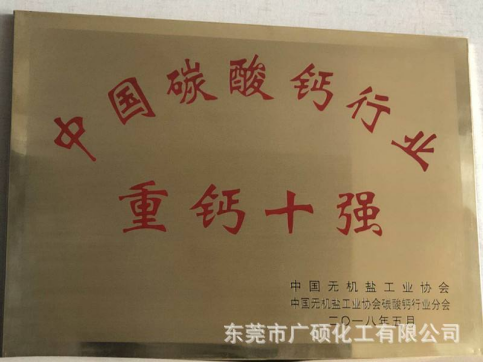 中国碳酸钙行业
重钙十强
中国无机盐工业协会
中国无机盐工业协会碳酸钙行业分会
二〇一八年五月
东莞市广硕化工有限公司